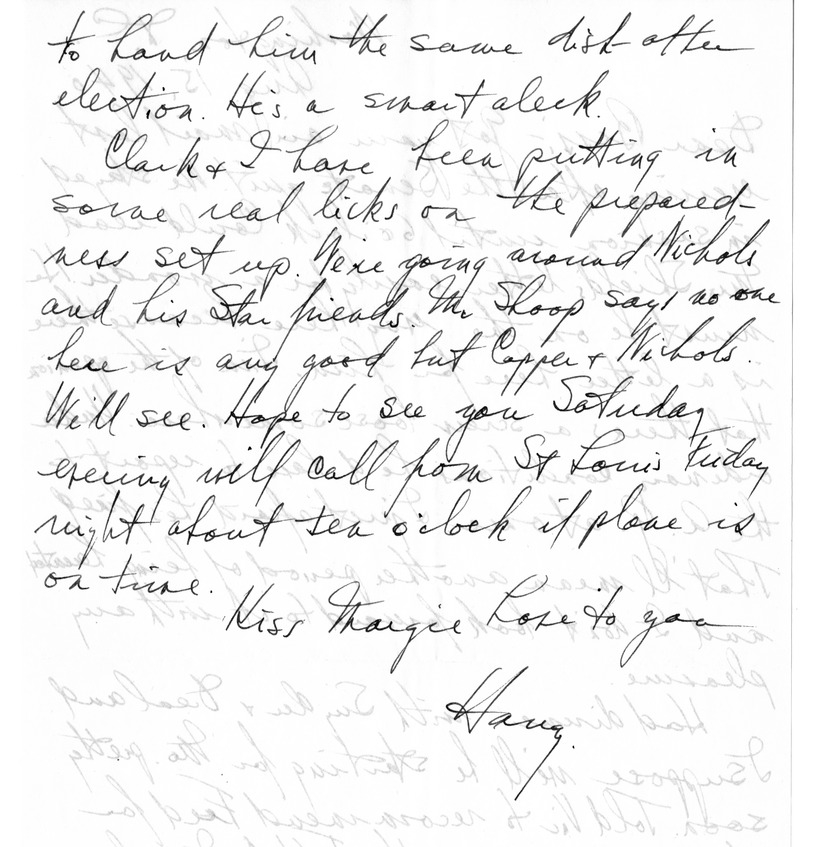 to hand him the same dish after
election. He's a smart aleck.
Clark & I have been putting in
some real licks on the prepared-
ness set up. We're going around Nichols
and his Star friends. Mr Shoop says no one
here is any good but Capper & Nichols.
We'll see. Hope to see you Saturday
evening will call from St Louis Friday
night about ten o'clock if plane is
on time.
Kiss Margie Love to you
Harry.